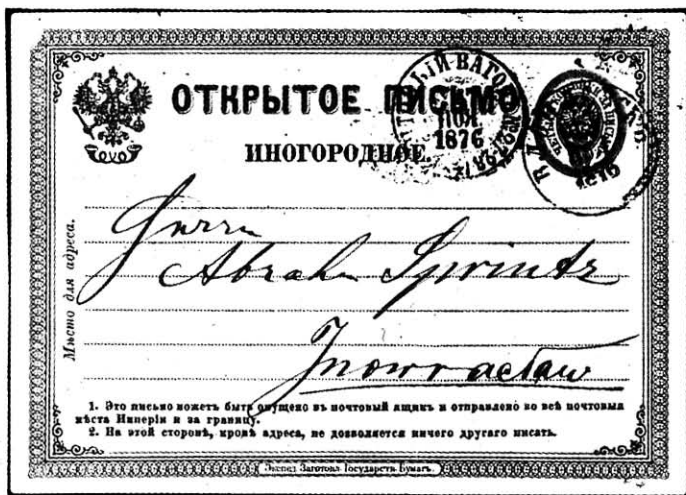 ОТКРЫТОЕ ПИСЬМО
ИНОГОРОДНОЕ.
1876
Мѣсто для адреса.
Herrn
Abraham
Inowraclaw
1. Это письмо можетъ быть опущено въ почтовый ящикъ и отправлено во всѣ почтовыя
мѣста Имперіи и за границу.
2. На этой сторонѣ, кромѣ адреса, не дозволяется ничего другаго писать.
Экспед. Заготовл. Государств. Бумагъ.